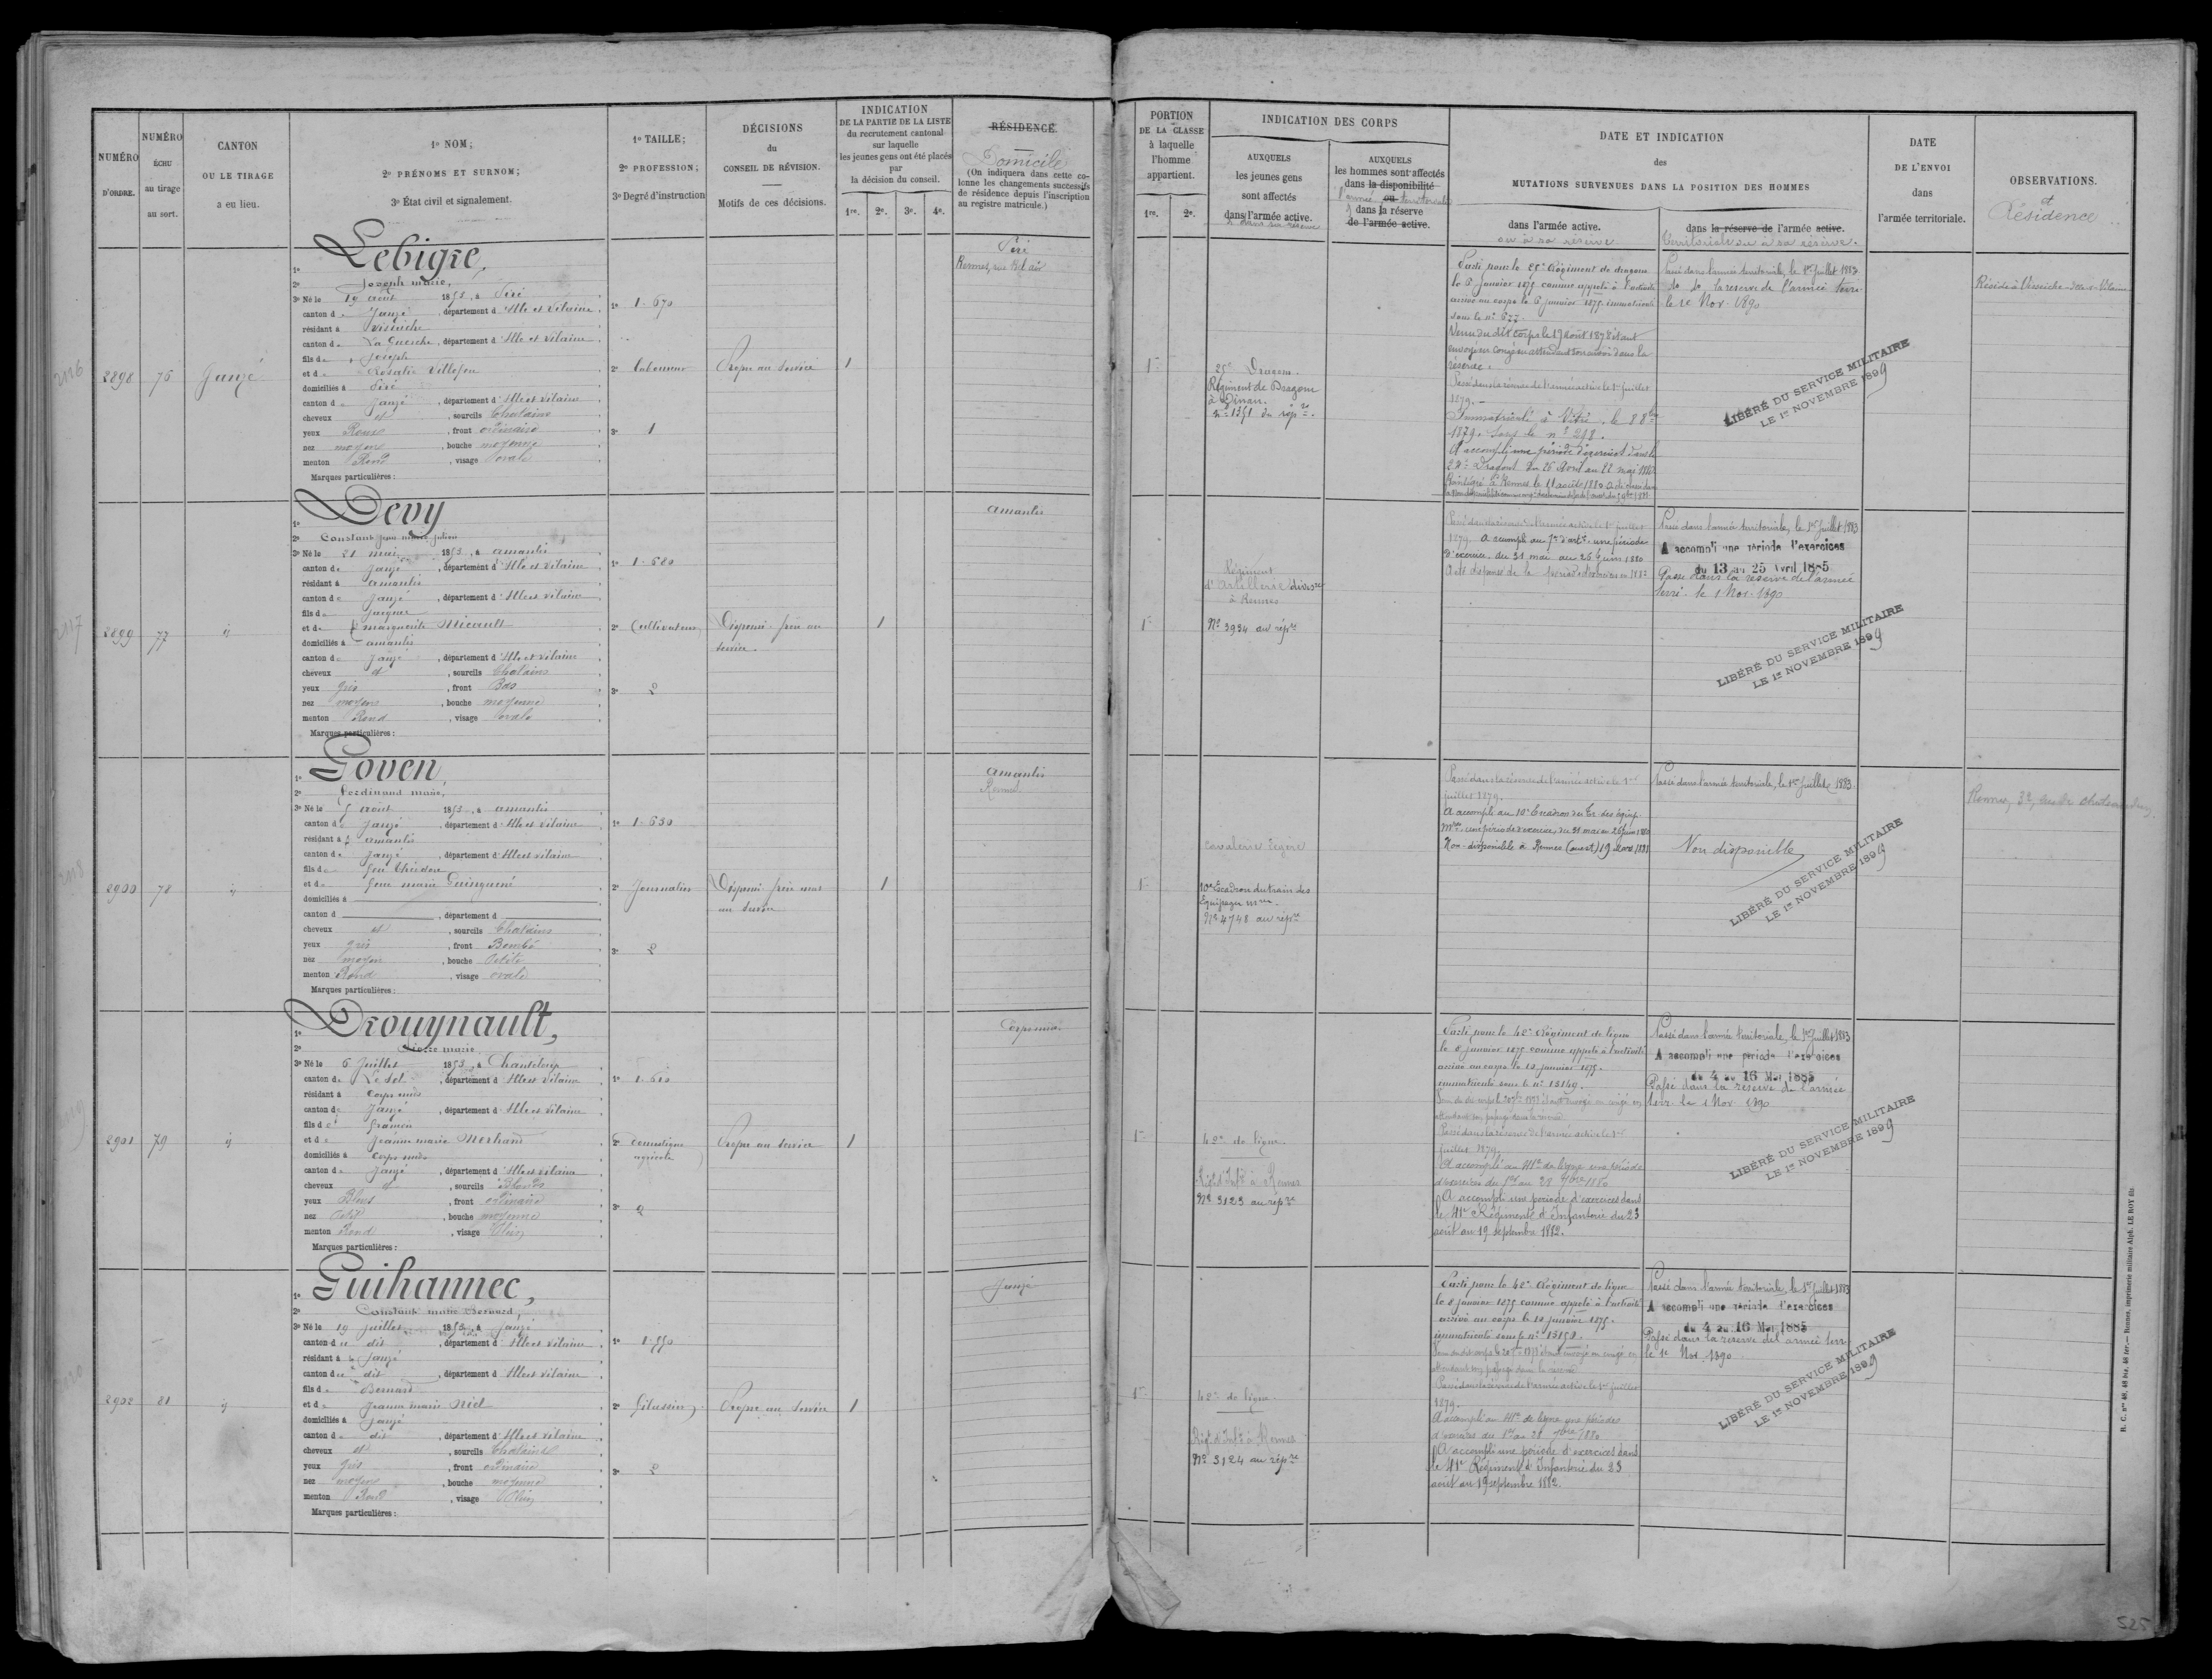 NUMÉRO
D'ORDRE.
NUMÉRO
ÉCHU
au tirage
au sort.
CANTON
OU LE TIRAGE
a eu lieu.
1º NOM;
2º PRÉNOMS ET SURNOM;
3º État civil et signalement.
1º TAILLE;
2º PROFESSION;
3º Degré d'instruction
DÉCISIONS
du
CONSEIL DE RÉVISION.
Motifs de ces décisions.
INDICATION
DE LA PARTIE DE LA LISTE
du recrutement cantonal
sur laquelle
les jeunes gens ont été placés
par
la décision du conseil.
1re. 2e. 3e. 4e.
RÉSIDENCE.
Domicile
(On indiquera dans cette co-
lonne les changements successifs
de résidence depuis l'inscription
au registre matricule.)
PORTION
DE LA CLASSE
à laquelle
l'homme
appartient.
1re. 2e.
INDICATION DES CORPS
AUXQUELS
les jeunes gens
sont affectés
dans l'armée active.
AUXQUELS
les hommes sont affectés
dans la disponibilité
ou
dans la réserve
de l'armée active.
DATE ET INDICATION
des
MUTATIONS SURVENUES DANS LA POSITION DES HOMMES
dans l'armée active.
ou à sa réserve
dans la réserve de l'armée active.
territoriale ou à sa réserve.
DATE
DE L'ENVOI
dans
l'armée territoriale.
OBSERVATIONS.
et
Résidence
2898 76 Janzé
1º Lebigre,
2º Joseph marie,
3º Né le 19 août 1853, à Piré
canton de Janzé, département d'Ille et Vilaine
résidant à Visseiche
canton de La Guerche, département d'Ille et Vilaine
fils de Joseph
et de Rosalie
domiciliés à Piré
canton de Janzé, département d'Ille et Vilaine
cheveux et, sourcils Chatains
yeux Roux, front ordinaire
nez moyen, bouche moyenne
menton Rond, visage ovale
Marques particulières :
1º 1.670
2º Laboureur
3º 1
Propre au service
1
Piré
25e Dragons.
Régiment de Dragons
à Dinan.
nº 1351 du répre.
Parti pour le 25e Régiment de dragons
le 6 janvier 1875 comme appelé à l'activité
arrivé au corps le 6 janvier 1875. immatriculé
sous le nº 677.
réserve.
Passé dans la réserve de l'armée active le 1er juillet
1879.
Immatriculé à Vitré, le 8 8bre
1879. sous le nº 298.
A accompli une période d'exercices dans le
24e Dragons du 25 Avril au 22 mai 1880
Passé dans l'armée territoriale, le 1er Juillet 1883
do do la réserve de l'armée terri.
le 1e Nov. 1890
LIBÉRÉ DU SERVICE MILITAIRE
LE 1er NOVEMBRE 1899
Réside à Visseiche Ille-et-Vilaine
2899 77 ij
1º Devy
2º Constant Jean marie Julien
3º Né le 21 mai 1853, à amanlis
canton de Janzé, département d'Ille et Vilaine
résidant à amanlis
canton de Janzé, département d'Ille et Vilaine
fils de Jacques
et de marguerite Micault
domiciliés à amanlis
canton de Janzé, département d'Ille et Vilaine
cheveux et, sourcils Chatains
yeux gris, front Bas
nez moyen, bouche moyenne
menton Rond, visage ovale
Marques particulières :
1º 1.680
2º Cultivateur
3º 2
Dispensé frère au
service.
1
amanlis
Régiment
d'Artillerie divisre
à Rennes
Nº 3934 au répre
Passé dans la réserve de l'armée active le 1er juillet
1879. A accompli au 7e d'artie une période
d'exercices du 31 mai au 26 juin 1880
A été dispensé de la période d'exercices en 1882
Passé dans l'armée territoriale, le 1er Juillet 1883
A accompli une période d'exercices
du 13 au 25 Avril 1885
Passé dans la réserve de l'armée
terri. le 1 Nov. 1890
LIBÉRÉ DU SERVICE MILITAIRE
LE 1er NOVEMBRE 1899
2900 78 ij
1º Goven,
2º Ferdinand marie,
3º Né le 5 août 1853, à amanlis
canton de Janzé, département d'Ille et Vilaine
résidant à amanlis
canton de Janzé, département d'Ille et Vilaine
fils de feu Théodore
et de feue marie
domiciliés à
canton d , département d
cheveux et, sourcils Chatains
yeux gris, front Bombé
nez moyen, bouche Petite
menton Rond, visage ovale
Marques particulières :
1º 1.630
2º Journalier
3º 2
Dispensé frère mort
au service
1
amanlis
Rennes
Cavalerie légère
10e Escadron du train des
Equipages mres
Nº 4748 au répre
Passé dans la réserve de l'armée active le 1er
juillet 1879.
A accompli au 10e Escadron du Tr. des équip.
mres, une période d'exercices du 31 mai au 26 juin 1880
Non-disponible à Rennes (ouest) 19 Mars 1881
Passé dans l'armée territoriale, le 1er Juillet 1883
Non disponible
LIBÉRÉ DU SERVICE MILITAIRE
LE 1er NOVEMBRE 1899
2901 79 ij
1º Drouynault,
2º Pierre marie
3º Né le 6 Juillet 1853, à Chanteloup
canton de Le Sel, département d'Ille et Vilaine
résidant à Corps nuds
canton de Janzé, département d'Ille et Vilaine
fils de
et de Jeanne marie
domiciliés à Corps nuds
canton de Janzé, département d'Ille et Vilaine
cheveux et, sourcils Blonds
yeux Bleus, front ordinaire
nez Petit, bouche moyenne
menton Rond, visage Plein
Marques particulières :
1º 1.610
2º domestique
agricole
3º 2
Propre au service
1
Corps nuds
42e de ligne.
Régt d'Infie à Rennes
Nº 3123 au répre
Parti pour le 42e Régiment de ligne
le 8 janvier 1875 comme appelé à l'activité
arrivé au corps le 10 janvier 1875.
immatriculé sous le nº 15149.
Passé dans la réserve de l'armée active le 1er
juillet 1879.
A accompli au 41e de ligne une période
d'exercices du 1er au 28 7bre 1880
A accompli une période d'exercices dans
le 41e Régiment d'Infanterie du 23
août au 19 septembre 1882.
Passé dans l'armée territoriale, le 1er Juillet 1883
A accompli une période d'exercices
du 4 au 16 Mai 1885
Passé dans la réserve de l'armée
terr. le 1 Nov. 1890
LIBÉRÉ DU SERVICE MILITAIRE
LE 1er NOVEMBRE 1899
2902 81 ij
1º Guihannec,
2º Constant marie Bernard,
3º Né le 19 juillet 1853, à Janzé
canton du dit, département d'Ille et Vilaine
résidant à Janzé
canton du dit, département d'Ille et Vilaine
fils de Bernard
et de Jeanne marie Niel
domiciliés à Janzé
canton du dit, département d'Ille et Vilaine
cheveux et, sourcils Chatains
yeux gris, front ordinaire
nez moyen, bouche moyenne
menton Rond, visage Plein
Marques particulières :
1º 1.550
3º 2
Propre au service
1
Janzé
42e de ligne.
Régt d'Infie à Rennes
Nº 3124 au répre
Parti pour le 42e Régiment de ligne
le 8 janvier 1875 comme appelé à l'activité
arrivé au corps le 10 janvier 1875.
immatriculé sous le nº 15151.
Passé dans la réserve de l'armée active le 1er juillet
1879.
A accompli au 41e de ligne une période
d'exercices du 1er au 28 7bre 1880
A accompli une période d'exercices dans
le 41e Régiment d'Infanterie du 23
août au 19 septembre 1882.
Passé dans l'armée territoriale, le 1er Juillet 1883
A accompli une période d'exercices
du 4 au 16 Mai 1885
Passé dans la réserve de l'armée terr.
le 1e Nov. 1890
LIBÉRÉ DU SERVICE MILITAIRE
LE 1er NOVEMBRE 1899
525